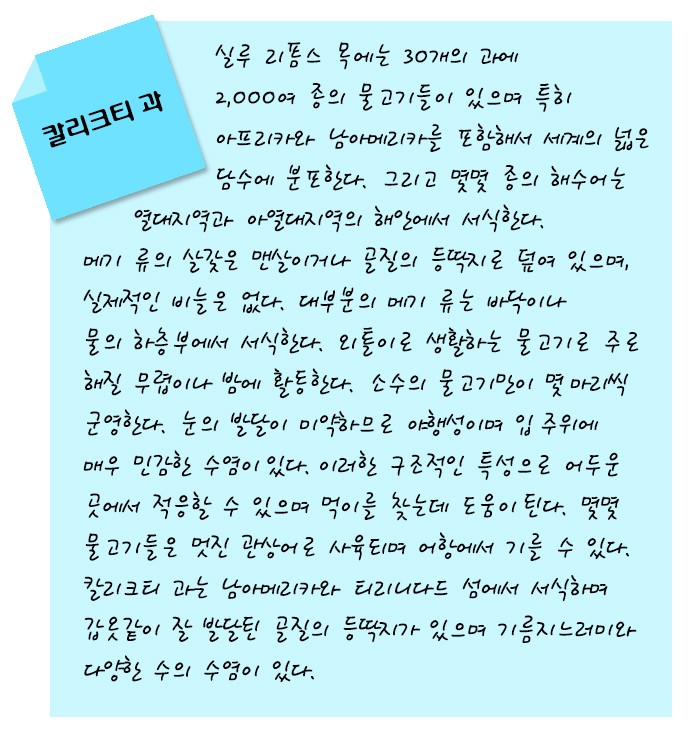 칼리크티 과
실루 리폼스 목에는 30개의 과에
2,000여 종의 물고기들이 있으며 특히
아프리카와 남아메리카를 포함해서 세계의 넓은
담수에 분포한다. 그리고 몇몇 종의 해수어는
열대지역과 아열대지역의 해안에서 서식한다.
메기 류의 살갗은 맨살이거나 골질의 등딱지로 덮여 있으며,
실제적인 비늘은 없다. 대부분의 메기 류는 바닥이나
물의 하층부에서 서식한다. 외톨이로 생활하는 물고기로 주로
해질 무렵이나 밤에 활동한다. 소수의 물고기만이 몇 마리씩
군영한다. 눈의 발달이 미약하므로 야행성이며 입 주위에
매우 민감한 수염이 있다. 이러한 구조적인 특성으로 어두운
곳에서 적응할 수 있으며 먹이를 찾는데 도움이 된다. 몇몇
물고기들은 멋진 관상어로 사육되며 어항에서 기를 수 있다.
칼리크티 과는 남아메리카와 티리니다드 섬에서 서식하며
갑옷같이 잘 발달된 골질의 등딱지가 있으며 기름지느러미와
다양한 수의 수염이 있다.